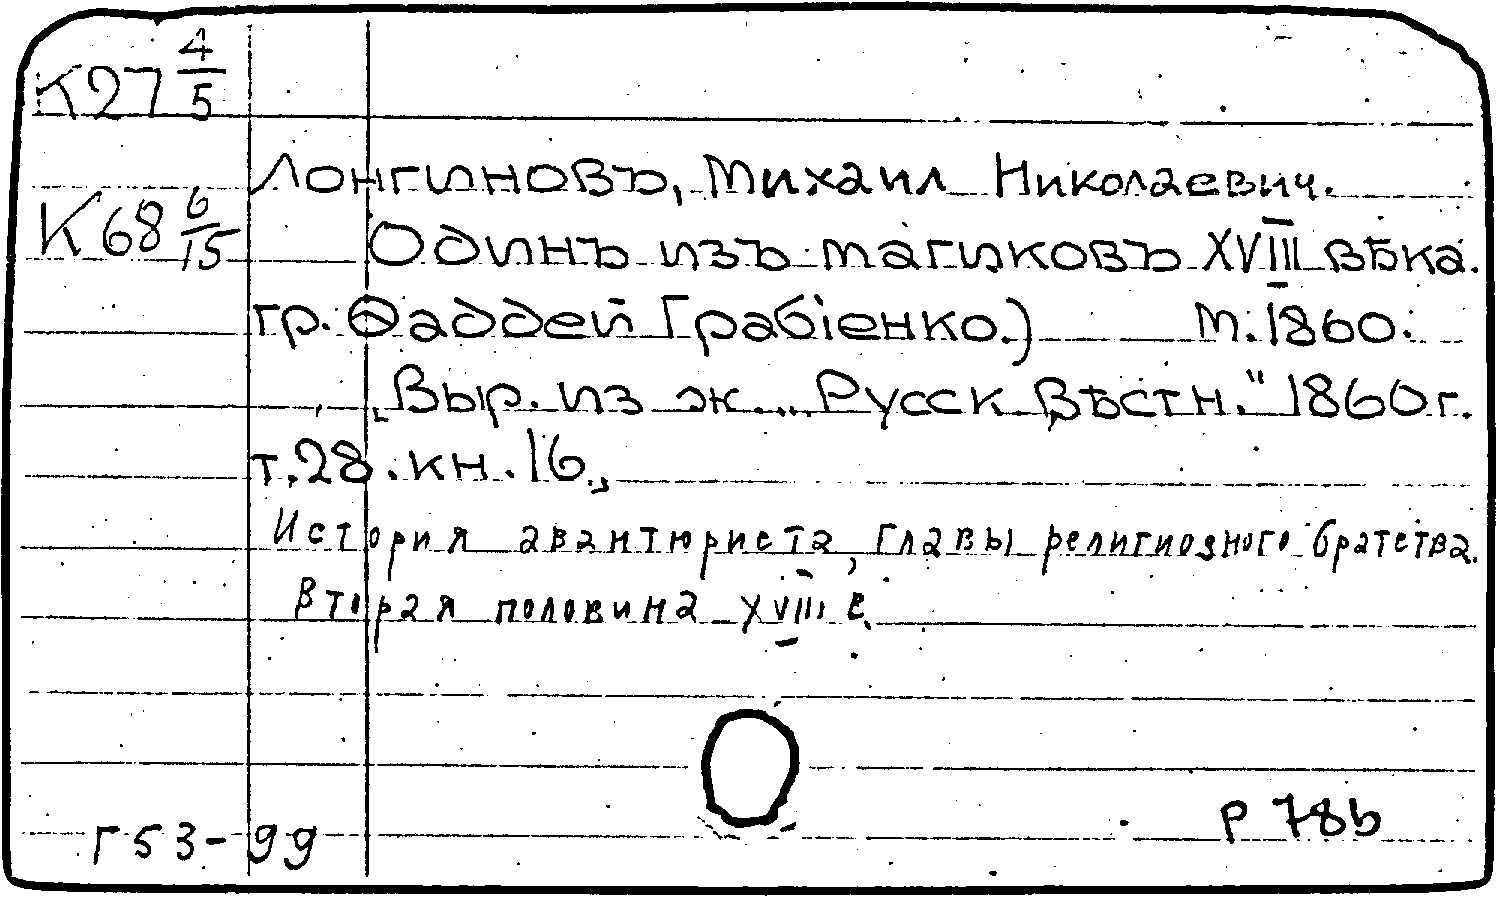 К27 4/5
Лонгиновъ, Михаил Николаевич.
К68 6/15
Одинъ изъ магиковъ XVIII вѣка.
гр. Ѳаддей Грабіенко.) М. 1860.
„Выр. из ж. „Русск. Вѣстн." 1860 г.
т. 28. кн. 16.,
История авантюриста, главы религиозного братства.
Вторая половина XVIII в.
Г53-99
Р 78b